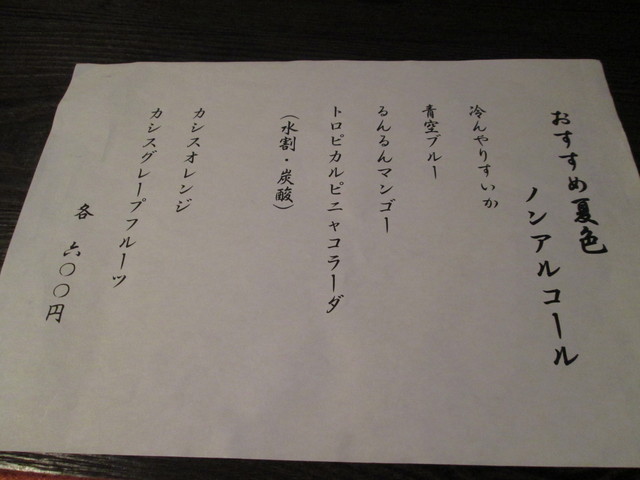 おすすめ夏色
ノンアルコール
冷んやりすいか
青空ブルー
るんるんマンゴー
トロピカルピニャコラーダ
（水割・炭酸）
カシスオレンジ
カシスグレープフルーツ
各 六〇〇円